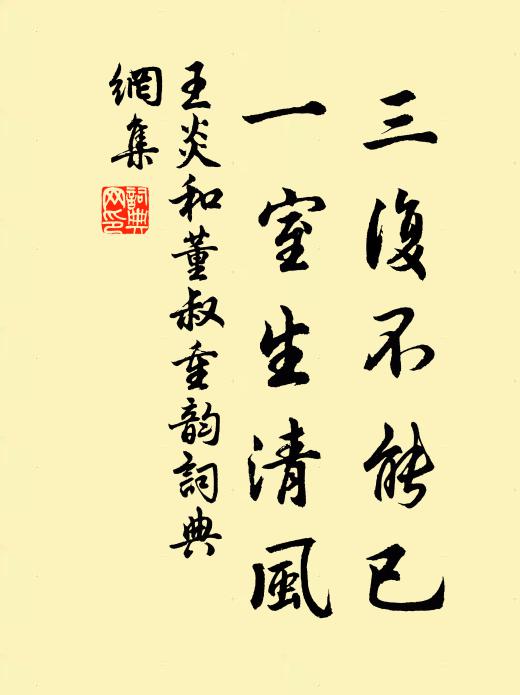 三復不能已
一室生清風
王炎和董叔重韵詞典
網集
詞典
网印